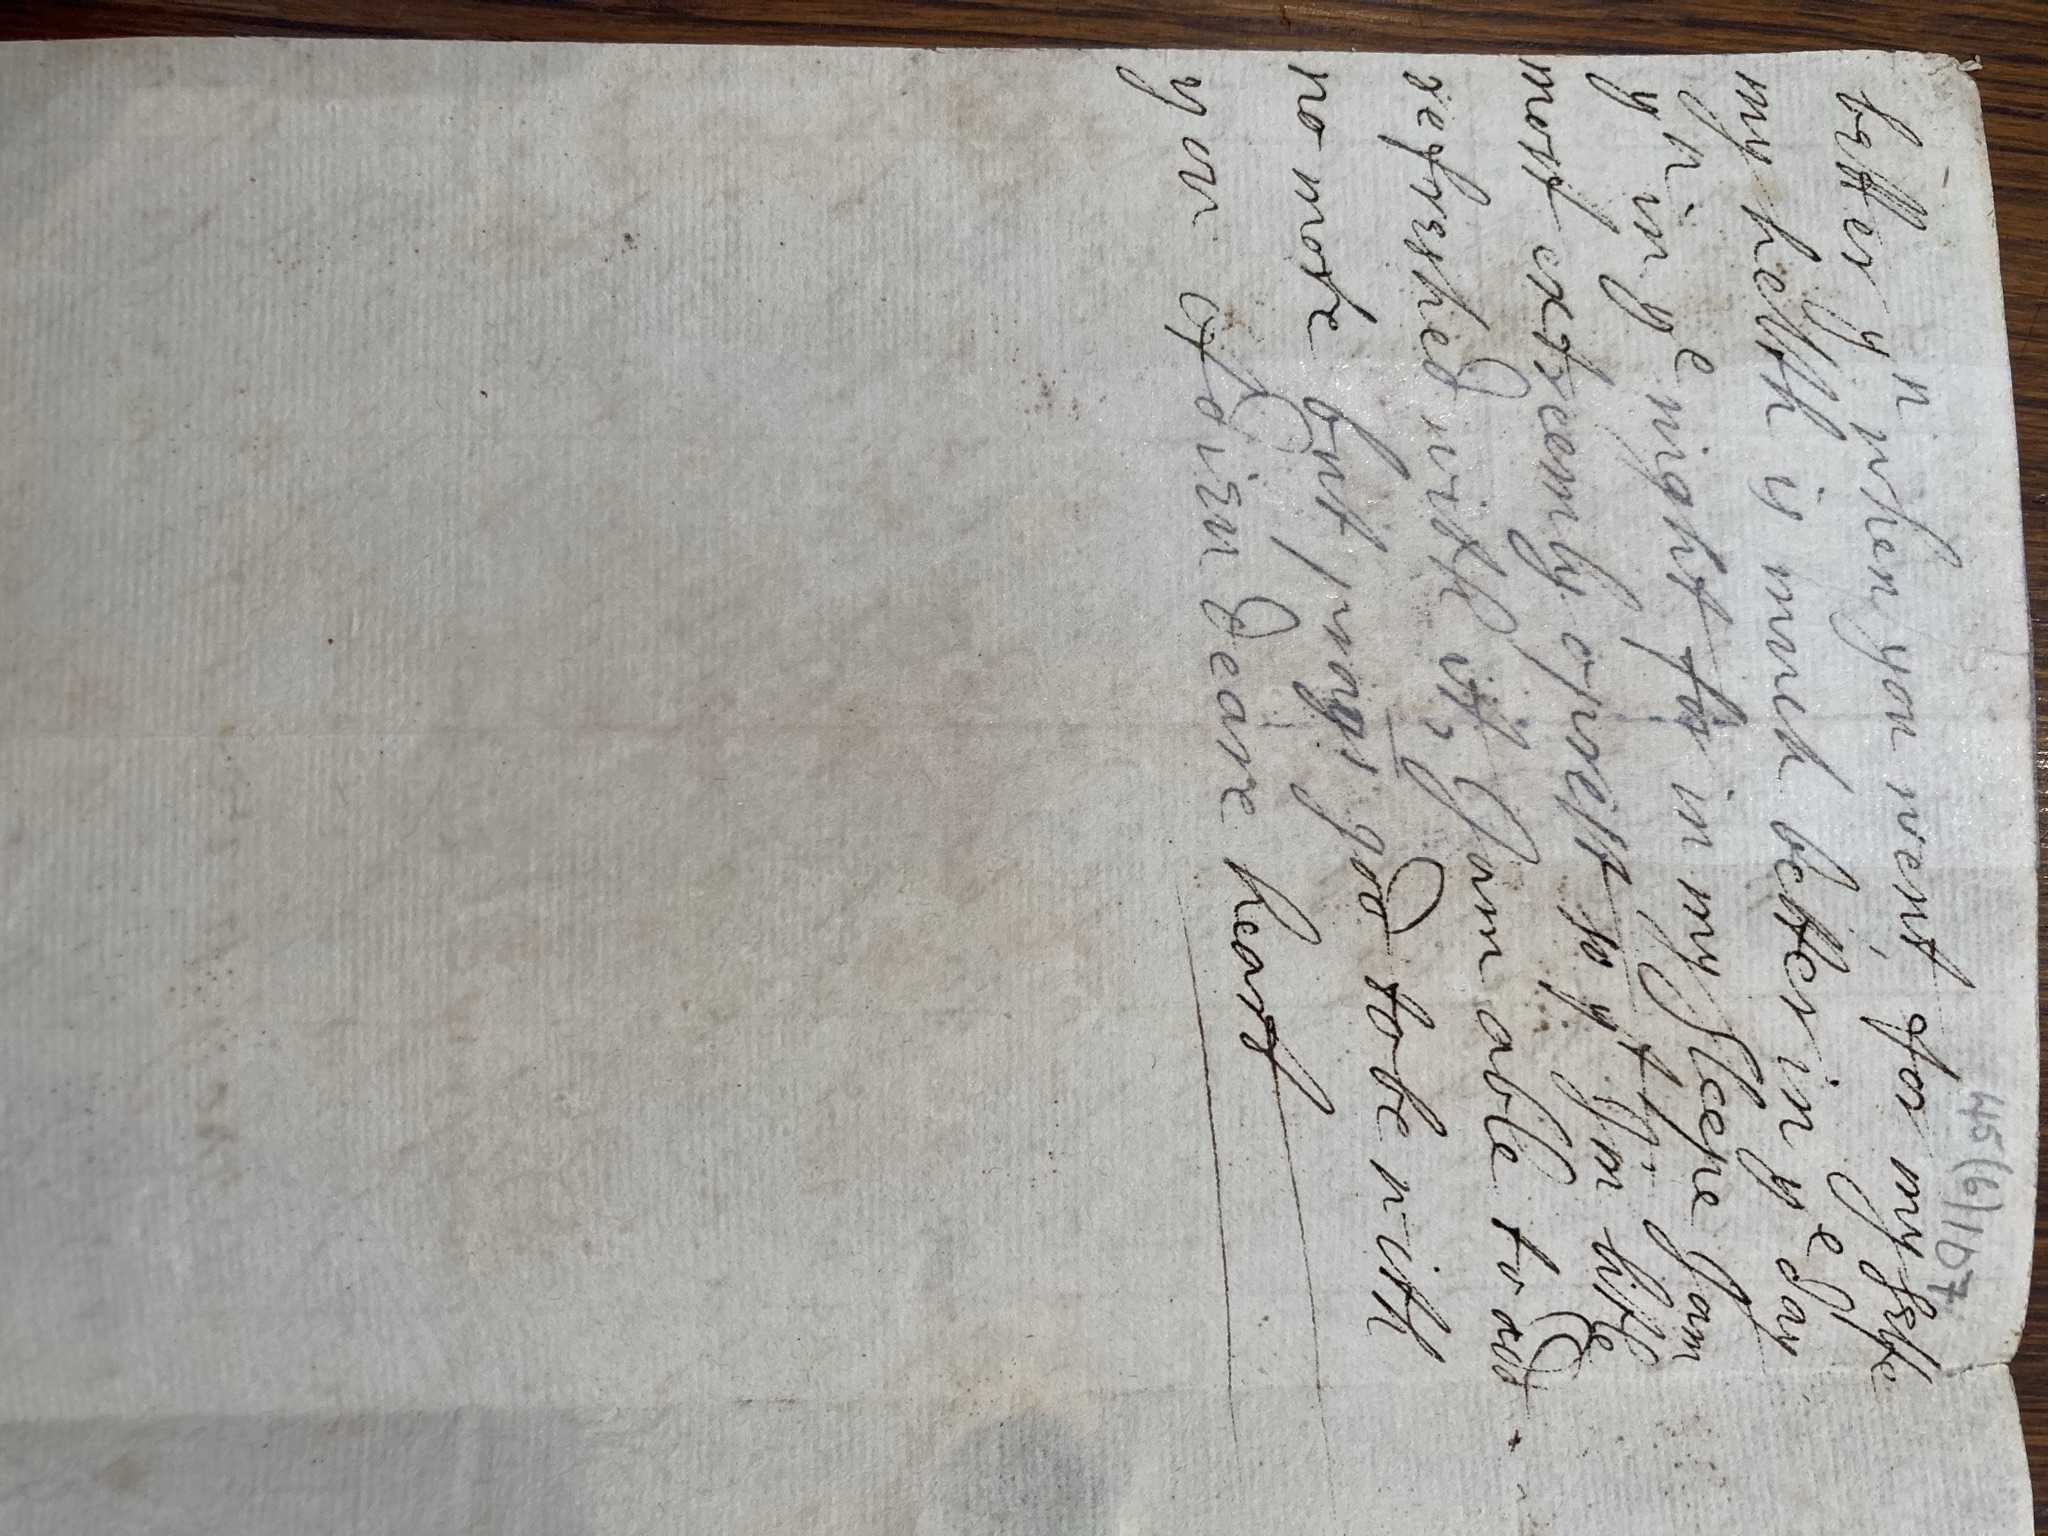 45(6)107
better yn when you went, for my selfe
my helth is much better in ye day
yn in ye night for in my sleepe I am
most extreemly oprest so yt I'm litle
refreshed with it, I am able to add
no more but prays god to be with
you Adieu deare heart